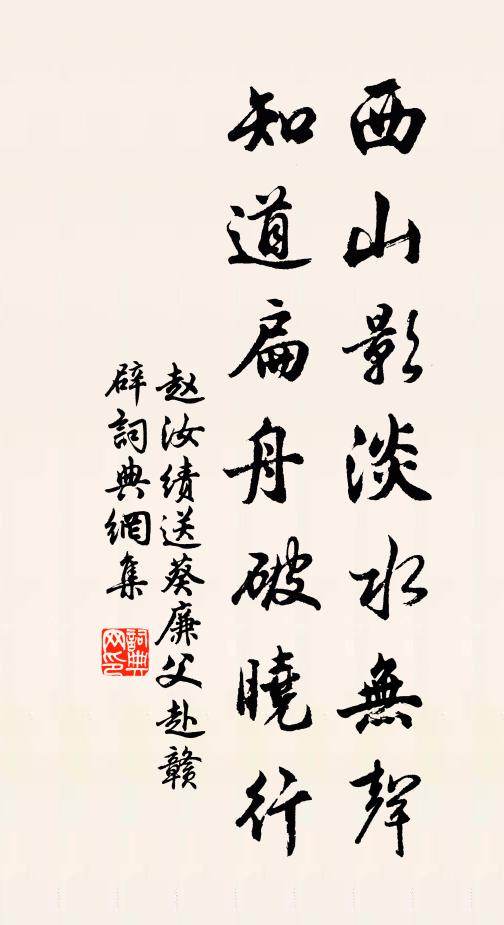 西山影淡水無聲
知道扁舟破曉行
赵汝绩送葵廉父赴赣
辟詞典網集
詞典
网印